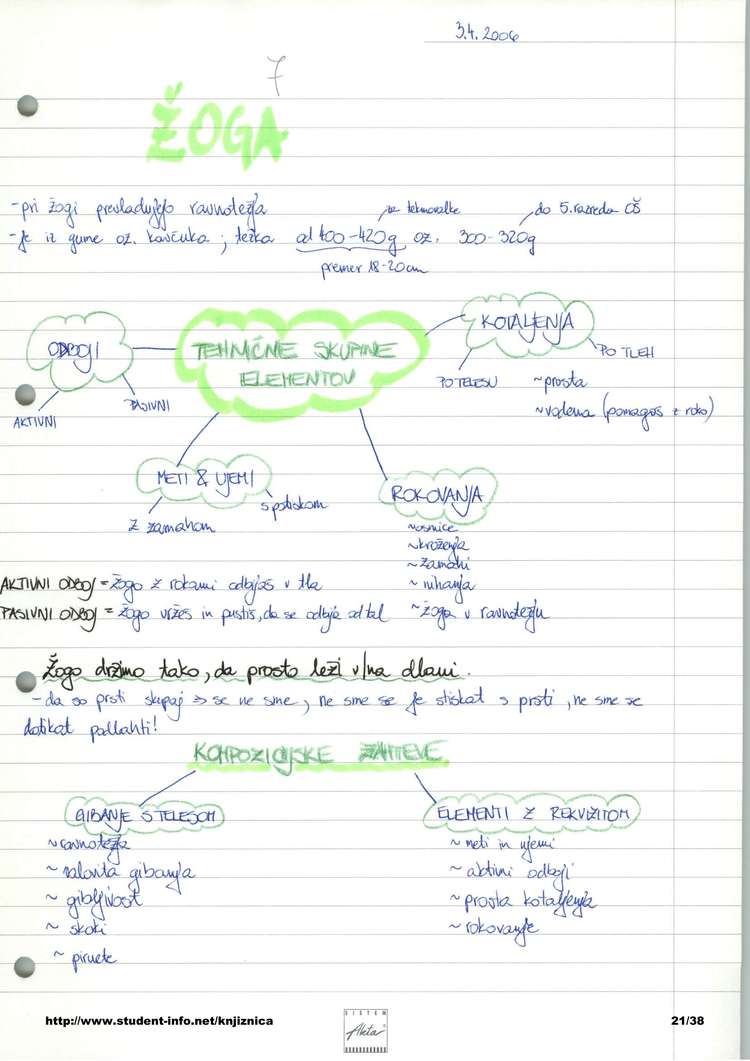 3.4. 2006
7
ŽOGA
- pri žogi prevladujejo ravnotežja
za tekmovalke
do 5. razreda OŠ
- je iz gume oz. kavčuka ; težka od 400-420g oz. 300-320g
premer 18-20cm
TEHNIČNE SKUPINE
ELEMENTOV
ODBOJI
AKTIVNI
PASIVNI
KOTALJENJA
PO TELESU
PO TLEH
~ prosta
~ vodena (pomagaš z roko)
METI & UJEMI
z zamahom
s potiskom
ROKOVANJA
~ osmice
~ kroženja
~ zamahi
~ nihanja
~ žoga v ravnotežju
AKTIVNI ODBOJ = žogo z rokami odbijaš v tla
PASIVNI ODBOJ = žogo vržeš in pustiš, da se odbije od tal
Žogo držimo tako, da prosto leži v/na dlani.
- da so prsti skupaj => se ne sme, ne sme se je stiskat s prsti, ne sme se
dotikat podlahti!
KOMPOZICIJSKE ZAHTEVE
GIBANJE S TELESOM
~ ravnotežja
~ valovita gibanja
~ gibljivost
~ skoki
~ piruete
ELEMENTI Z REKVIZITOM
~ meti in ujemi
~ aktivni odboji
~ prosta kotaljenja
~ rokovanje
http://www.student-info.net/knjiznica
SISTEM
Akta
21/38